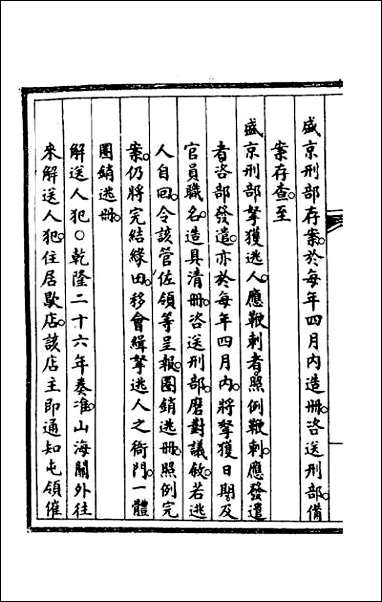 盛京刑部存案。於每年四月內造冊。咨送刑部。備
案存查。至
盛京刑部拏獲逃人。應鞭刺者照例鞭刺。應發遣
者咨部發遣。亦於每年四月內。將拏獲日期及
官員職名。造具清冊。咨送刑部。磨對議敘。若逃
人自回。令該管佐領等呈報。圈銷逃冊。照例完
案。仍將完結緣由。移會緝拏逃人之衙門。一體
圈銷逃冊。
解送人犯〇乾隆二十六年奏准。山海關外往
來解送人犯。住居歇店。該店主即通知屯領催